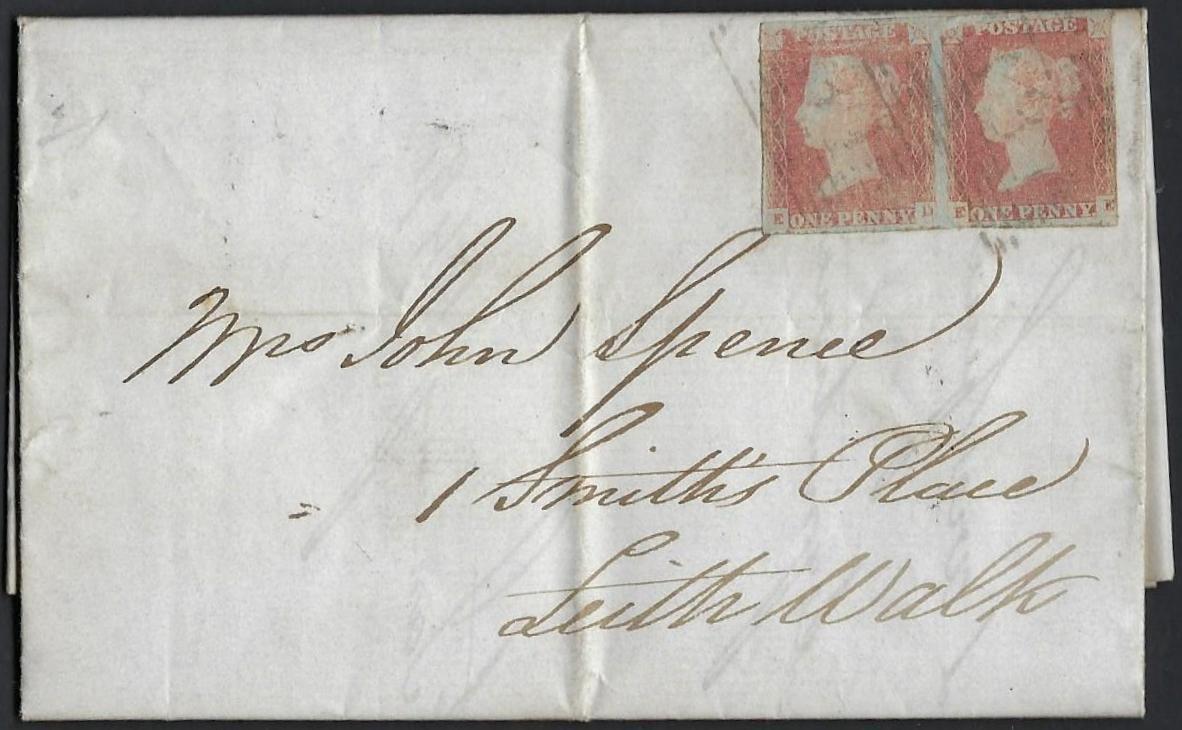 POSTAGE POSTAGE
E ONE PENNY D E ONE PENNY E
Mrs John Spence
1 Smith's Place
Leith Walk